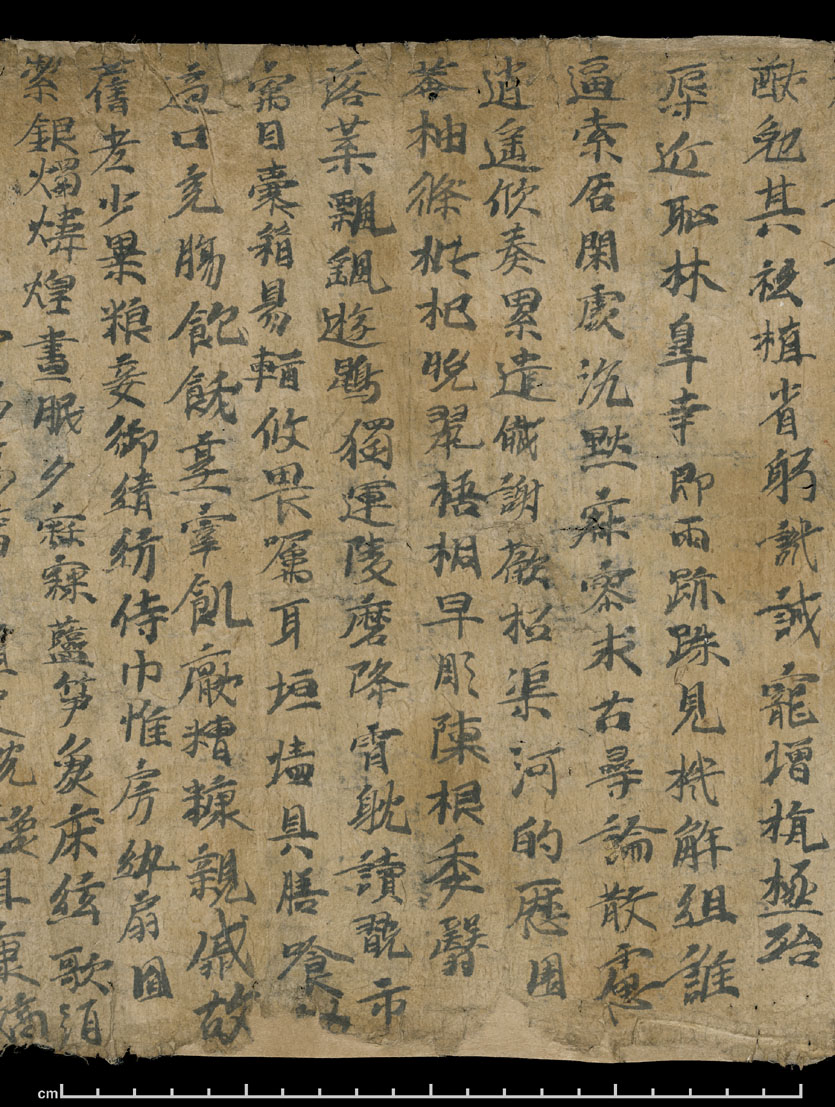 猷勉其祗植省躬譏誡寵增抗極殆
辱近恥林皐幸即雨跡踈見機解組誰
逼索居閑處沉默寐寥求古尋論散慮
逍遙欣奏累遣慽謝歡招渠河的歷園
莽柚條枇杷晚翠梧桐早彫陳根委翳
落葉飄颻遊鵾獨運陵磨降霄耽讀翫市
寓目囊箱易輶攸畏囑耳垣墻具膳喰以
適口充腸飽飫烹宰飢厭糟糠親戚故
舊老少異粮妾御績紡侍巾惟房紈扇圓
潔銀燭煒煌晝眠夕寐藍笋象床絃歌須
cm